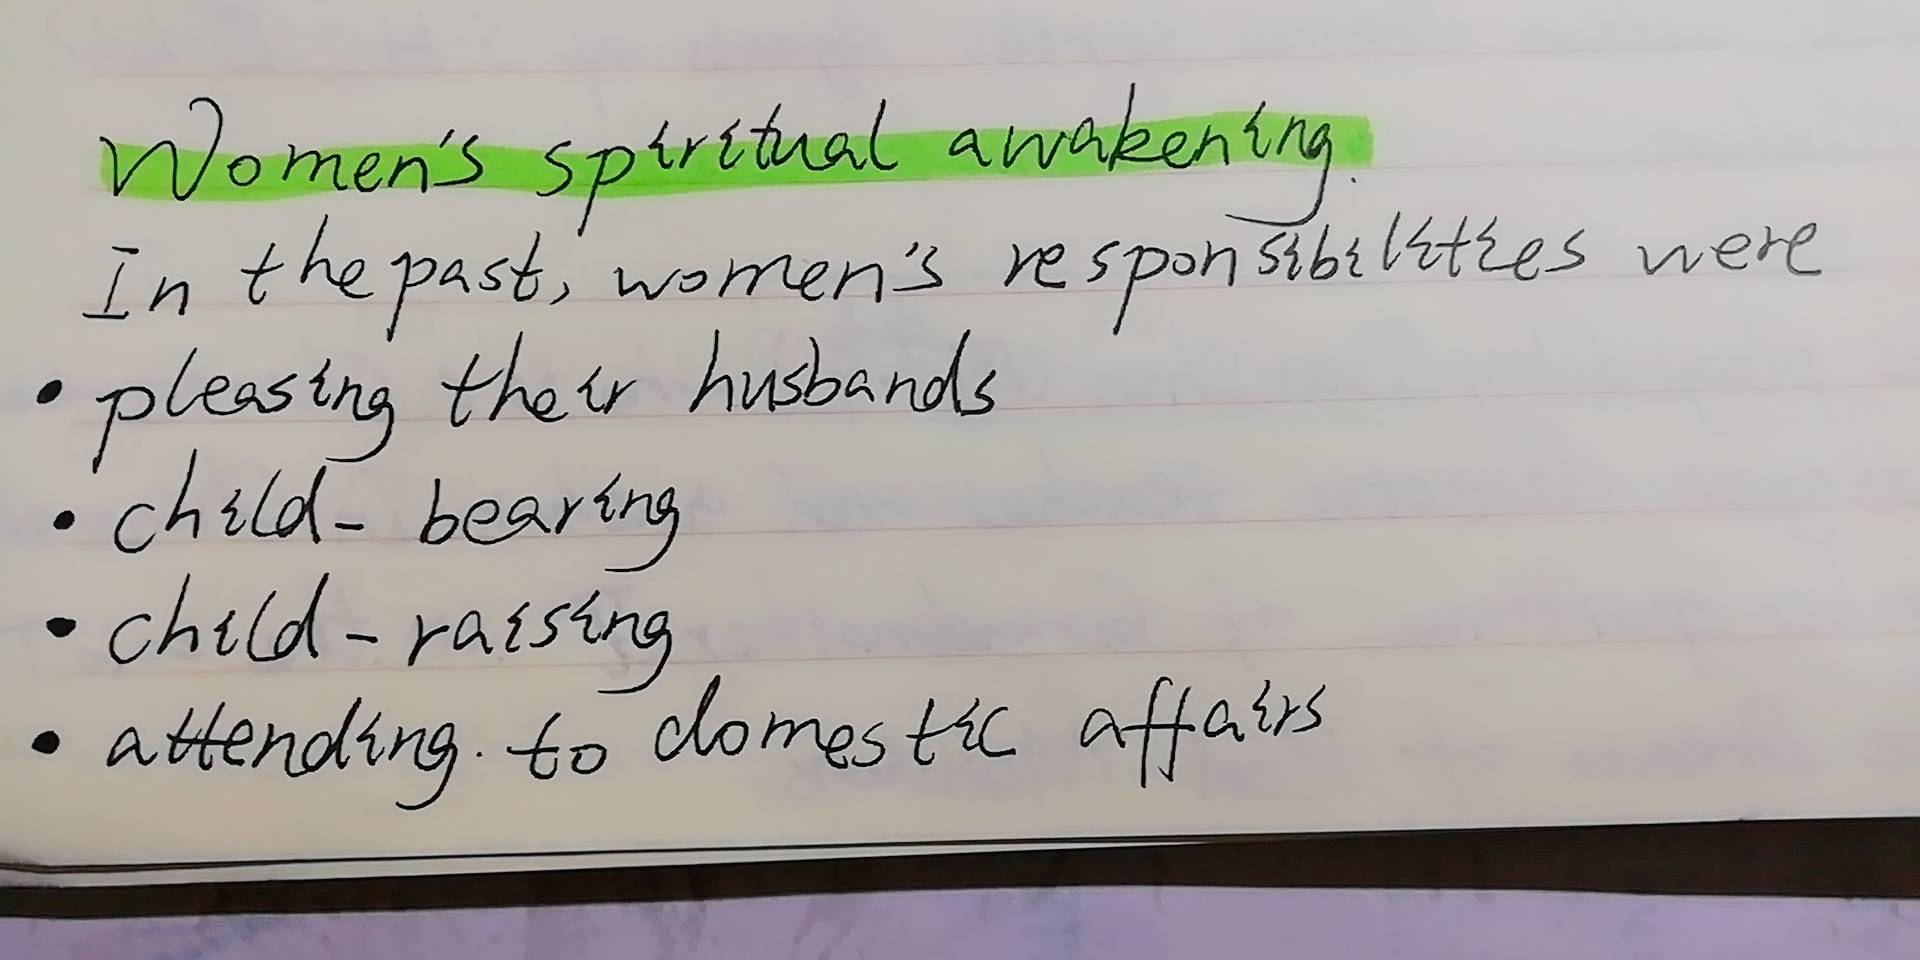 Women's spiritual awakening.
In the past, women's responsibilities were
• pleasing their husbands
• child-bearing
• child-raising
• attending. to domestic affairs